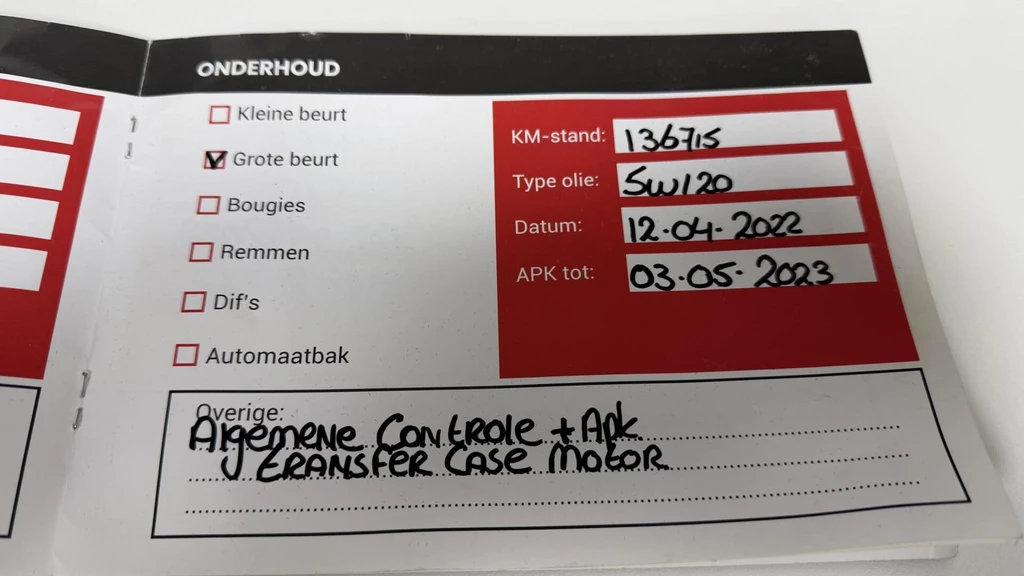 ONDERHOUD
Kleine beurt
Grote beurt
Bougies
Remmen
Dif's
Automaatbak
KM-stand: 136715
Type olie: 5W120
Datum: 12-04-2022
APK tot: 03-05-2023
Overige:
Algemene Controle + Apk
transfer Case Motor